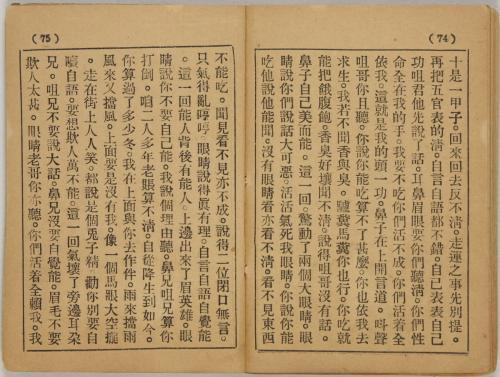 (74)
十是一甲子。回來回去反不清。走運之事先別提。
再把五官表的清。自言自語都不錯。自己表表自己
功咀君他先說了話。耳鼻眉眼要你們聽清。你們性
命全在我的手。我要不吃你們活不成。你們活着全
依我。這就是我的頭一功。鼻子在上開言道。叫聲
咀哥你且聽。你說你能吃算不了甚麼。你也依我去
求生。我若不聞香與臭。驢糞馬糞你也行。你吃就
能把餓腹飽。香臭好壞聞不清。說得咀哥沒有話。
鼻子自己美而能。這一回驚動了兩個大眼睛。眼
睛說你們說話大可惡。活活氣死我眼睛。你說你能
吃他說他能聞。沒有眼睛看亦看不清。看不見東西
(75)
不能吃。聞見看不見亦不成。說得二位閉口無言。
只氣得亂哼哼。眼睛說得眞有理。自言自語自覺能
。這一回能人背後有能人。上邊出來了眉英雄。眼
睛說你不要自己能。我說個理由聽。鼻兄咀兄算你
打倒。咱二人多年老賬算不清。自從降生到如今。
你算過了多少冬。我在上面與你去作伴。雨來擋雨
風來又擋風。上面要是沒有我。像一個馬眼大空
。走在街上人人笑。都說是個兔子精 勸你別要自
嚷自語。要想欺人萬不能。這一回氣壞了旁邊耳朵
兄。咀兄不要說大話。鼻兄沒要自覺能。眉毛不要
欺人太甚。眼睛老哥你亦聽。你們活着全賴我。我